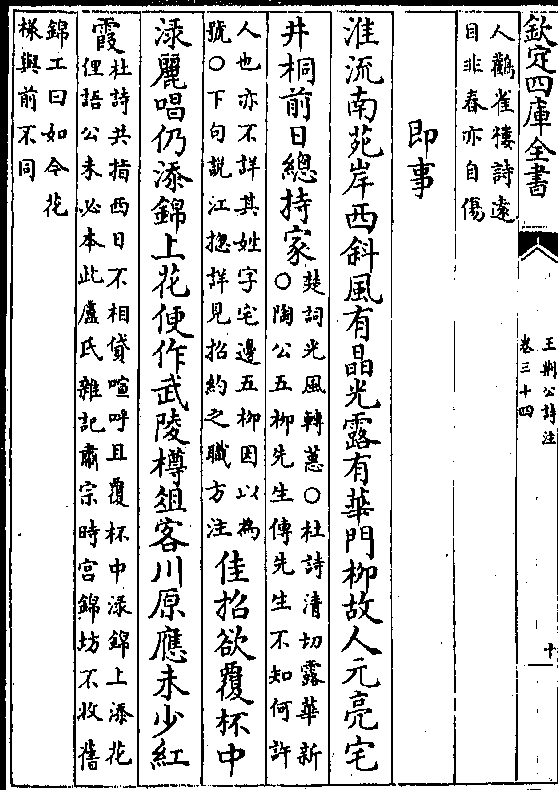 欽定四庫全書
王荊公詩注
卷三十四
十
人鸛雀樓詩遠
目非春亦自傷
即事
淮流南苑岸西斜風有晶光露有華門柳故人元亮宅
井桐前日總持家
楚詞光風轉蕙○杜詩清切露華新
○陶公五柳先生傳先生不知何許
人也亦不詳其姓字宅邊五柳因以為
號○下句說江揔詳見招約之職方注
佳招欲覆杯中
淥麗唱仍添錦上花便作武陵樽俎客川原應未少紅
霞
杜詩共指西日不相貸喧呼且覆杯中淥錦上添花
俚語公未必本此盧氏雜記肅宗時宮錦坊不收舊
錦工曰如今花
樣與前不同